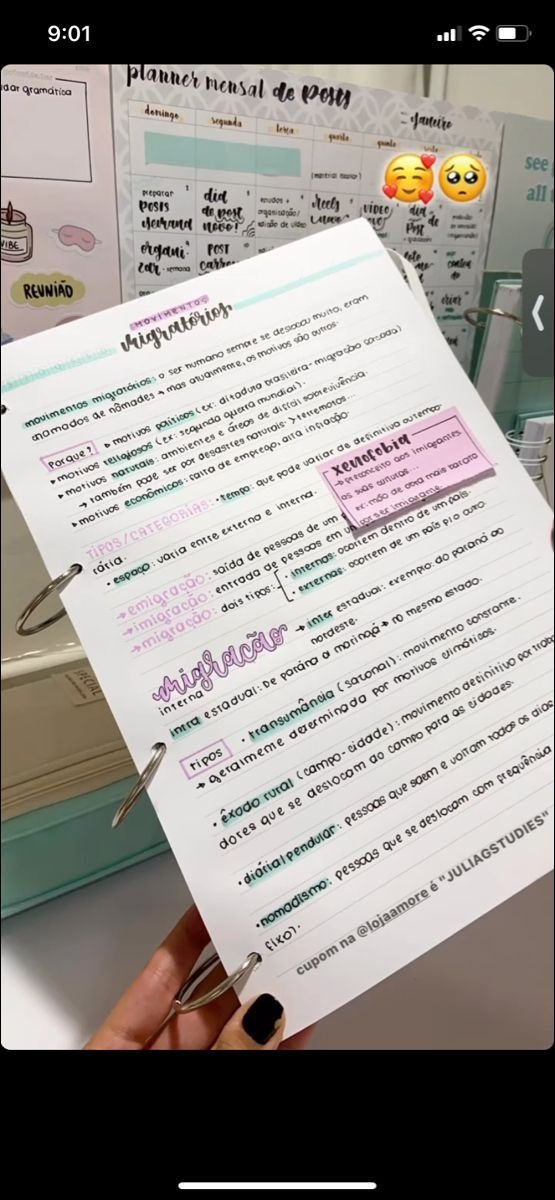 9:01
planner mensal de posts
- Janeiro
dar gramática
domingo
segunda
terça
quarta
quinta
see
all
preparar
posts
semana
dia
de post
novo!
organização/
VÍDEO
dia de
post
organi
zar - semana
POST
VIBE
REUNIÃO
MOVIMENTOS
migratórios
movimentos migratórios: o ser humano sempre se deslocou muito, eram
chamados de nômades → mas atualmente, os motivos são outros.
porque?
motivos políticos (ex: ditadura brasileira - migração forçada)
motivos religiosos (ex: segunda guerra mundial).
motivos naturais: ambientes e áreas de difícil sobrevivência.
→ também pode ser por desastres naturais. > terremotos...
motivos econômicos: falta de emprego, alta inflação.
xenofobia
→ preconceito aos imigrantes
as suas culturas...
ex: mão de obra mais barata
por ser imigrante.
TIPOS/CATEGORIAS: • tempo: que pode variar de definitivo a tempo-
rária.
• espaço: varia entre externa e interna.
→ emigração: saída de pessoas de um
→ imigração: entrada de pessoas em um país.
→ migração: dois tipos:
• internas: ocorrem dentro de um país.
• externas: ocorrem de um país p/o outro.
migração
interna
→ inter estadual: exemplo: do paraná ao
nordeste.
intra estadual: De parána a maringá → no mesmo estado.
tipos
• transumância (sazonal): movimento constante.
→ geralmente determinada por motivos climáticos.
• êxodo rural (campo-cidade): movimento definitivo por traba
dores que se deslocam do campo para as cidades.
• diária/pendular: pessoas que saem e voltam todos os dias
• nomadismo: pessoas que se deslocam com frequência
fixo).
cupom na @lojaamore é "JULIAGSTUDIES"
SPECIAL